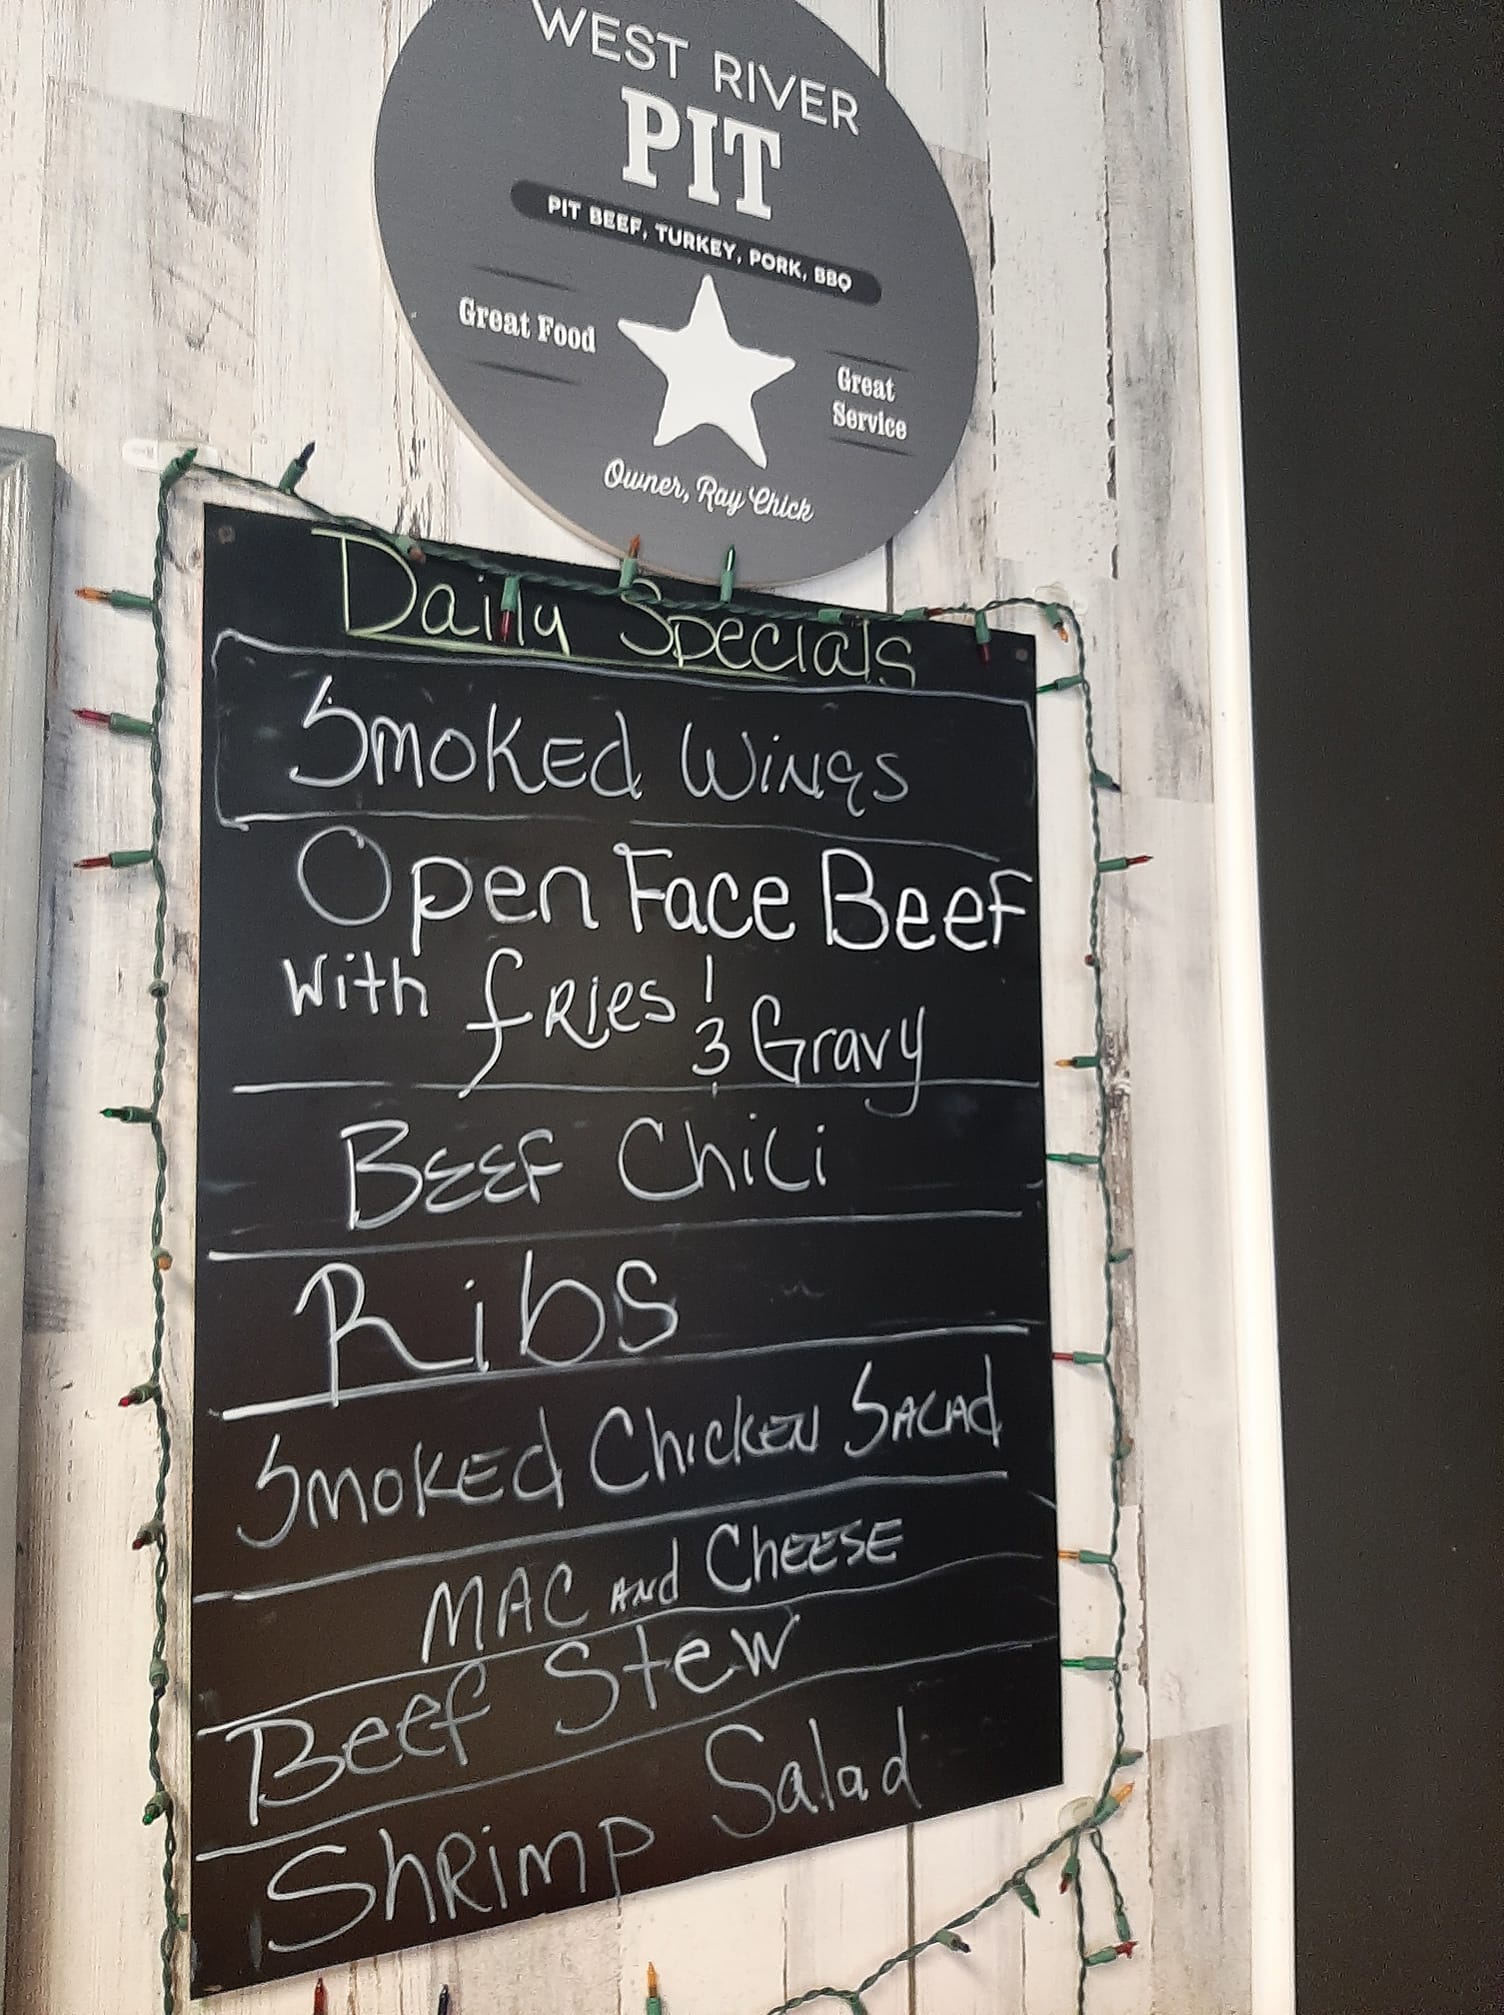 WEST RIVER
PIT
PIT BEEF, TURKEY, PORK, BBQ
Great Food
Great
Service
Owner, Ray Chick
Daily Specials
Smoked Wings
Open Face Beef
With fries & Gravy
Beef Chili
Ribs
Smoked Chicken Salad
MAC and Cheese
Beef Stew
Shrimp Salad